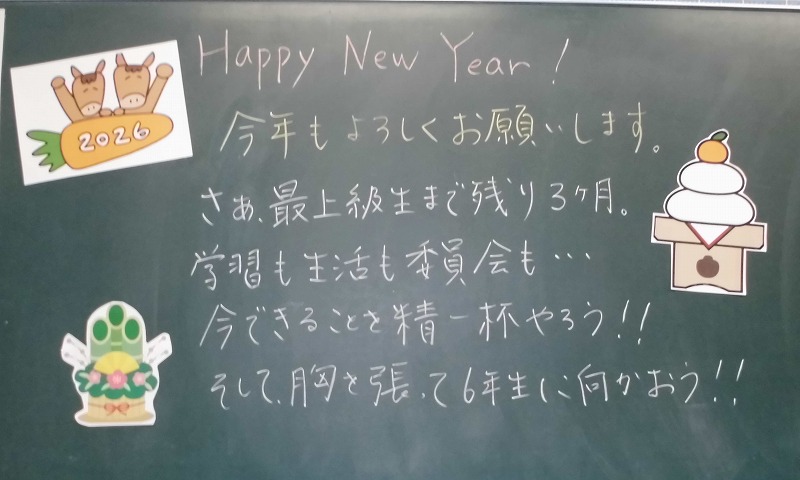 Happy New Year!
2026
今年もよろしくお願いします。
さぁ、最上級生まで残り3ヶ月。
学習も生活も委員会も…
今できることを精一杯やろう!!
そして、胸を張って6年生に向かおう!!